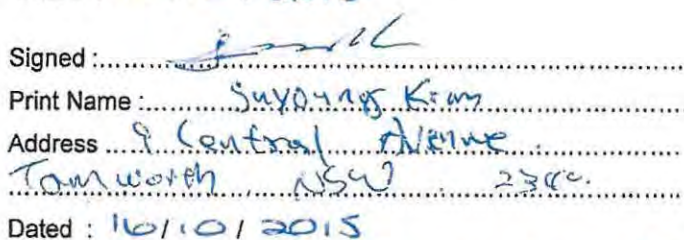 Signed :
Print Name : Suyoung Kim
Address 9 Central Avenue
Tamworth NSW 2340.
Dated : 16/10/2015